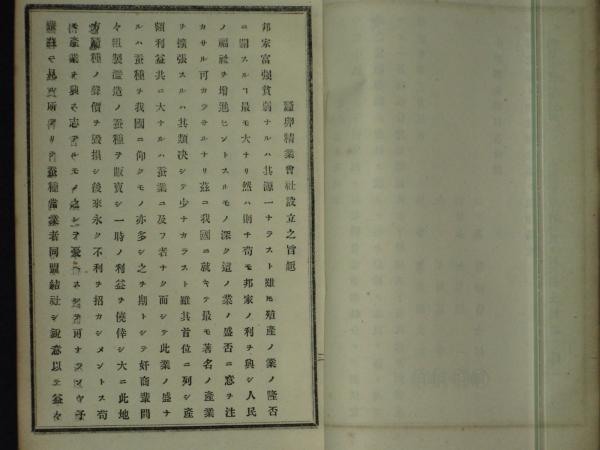 蠶卵精業會社設立之旨趣
邦家富强貧弱ナルハ其源一ナラスト雖𪜈殖産ノ業ノ隆否
ニ關スルヿ最モ大ナリ然ハ則チ苟モ邦家ノ利ヲ興シ人民
ノ福祉ヲ增進セントスルモノ深ク這ノ業ノ盛否ニ意ヲ注
カサル可カラサルナリ茲ニ我國ニ就キテ最モ著名ノ産業
ヲ擴張スルハ其類決シテ少ナカラスト雖其首位ニ列シ産
額利益共ニ大ナルハ蚕業ニ及フ者ナク而シテ此業ノ盛ナ
ルハ蚕種ヲ我國ニ仰クモノ亦多シ之ヲ期トシテ奸商輩間
々粗製濫造ノ蚕種ヲ販賣シ一時ノ利益ヲ僥倖シ大ニ此地
方蚕種ノ聲價ヲ毀損シ後來永ク不利ヲ招カシメントス苟
モ産業ヲ興ス志アルモノ之レヲ憂ヘスシテ可ナランヤ予
輩茲ニ見ル所アリテ蚕種營業者同盟結社シ銳意以テ益々